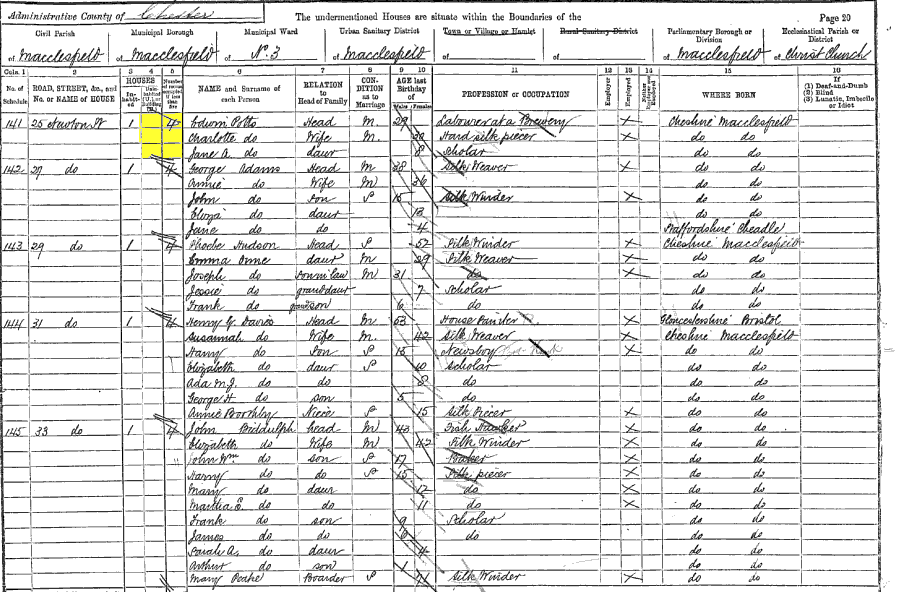 Administrative County of Chester The undermentioned Houses are situate within the Boundaries of the Page 20
Civil Parish Municipal Borough Municipal Ward Urban Sanitary District Town or Village or Hamlet Rural Sanitary District Parliamentary Borough or Division Ecclesiastical Parish or District
of Macclesfield of Macclesfield of No. 3 of Macclesfield of of of Macclesfield of Christ Church
Cols. 1 2 3 4 5 6 7 8 9 10 11 12 13 14 15 16
No. of Schedule ROAD, STREET, &c., and No. or NAME of HOUSE HOUSES Inhabited NAME and Surname of each Person RELATION to Head of Family CONDITION as to Marriage AGE last Birthday of Males Females PROFESSION or OCCUPATION Employer Employed WHERE BORN If (1) Deaf-and-Dumb (2) Blind (3) Lunatic, Imbecile or Idiot
141 25 St 1 4 Edwin Potts Head M 29 Labourer at a Brewery X Cheshire Macclesfield
Charlotte do Wife M 30 Hard silk piecer X do do
Jane A. do daur 8 Scholar do do
142 27 do 1 4 George Adams Head M 38 Silk Weaver X do do
Annie do Wife M 36 do do
John do son S 15 Silk Winder X do do
Eliza do daur 13 do do
Jane do do 4 Staffordshire Cheadle
143 29 do 1 4 Phoebe Hudson Head S 52 Silk Winder X Cheshire Macclesfield
Emma Orme daur M 29 Silk Weaver X do do
Joseph do son in law M 31 do X do do
Jessie do grand daur 7 Scholar do do
Frank do grand son 6 do do do
144 31 do 1 4 Henry Y. Davies Head M 53 House Painter X Gloucestershire Bristol
Susannah do Wife M. 42 Silk Weaver X Cheshire Macclesfield
Harry do Son S 15 Newsboy X do do
Elizabeth do daur S 10 Scholar do do
Ada M.J. do do 8 do do do
George H. do son 5 do do do
Annie Niece S 15 Silk Piecer X do do
145 33 do 1 4 John Biddulph head M 43 Fish Hawker X do do
Elizabeth do Wife M 42 Silk Winder X do do
John Wm do son S 17 Baker X do do
Harry do do S 15 Silk piecer X do do
Mary do daur 12 do X do do
Martha E. do do 11 do X do do
Frank do son 9 Scholar do do
James do do 6 do do do
Sarah A. do daur 4 do do
Arthur do son 1 do do
Mary Peake Boarder S 71 Silk Winder X do do